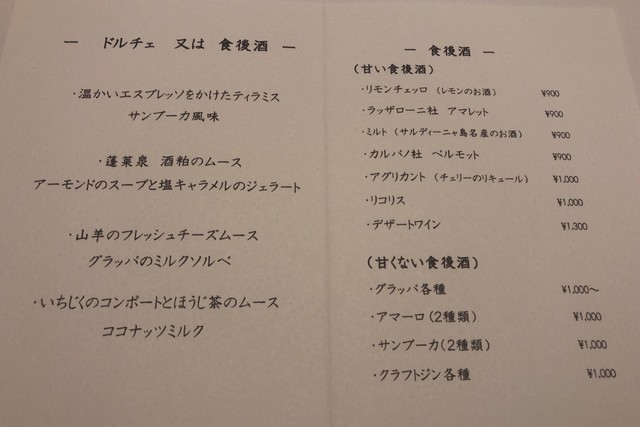 ― ドルチェ 又は 食後酒 ―
・温かいエスプレッソをかけたティラミス
サンブーカ風味
・蓬莱泉 酒粕のムース
アーモンドのスープと塩キャラメルのジェラート
・山羊のフレッシュチーズムース
グラッパのミルクソルベ
・いちじくのコンポートとほうじ茶のムース
ココナッツミルク
― 食後酒 ―
(甘い食後酒)
・リモンチェッロ (レモンのお酒) ¥900
・ラッザローニ社 アマレット ¥900
・ミルト (サルディーニャ島名産のお酒) ¥900
・カルパノ社 ベルモット ¥900
・アグリカント (チェリーのリキュール) ¥1,000
・リコリス ¥1,000
・デザートワイン ¥1,300
(甘くない食後酒)
・グラッパ各種 ¥1,000～
・アマーロ(2種類) ¥1,000
・サンブーカ(2種類) ¥1,000
・クラフトジン各種 ¥1,000